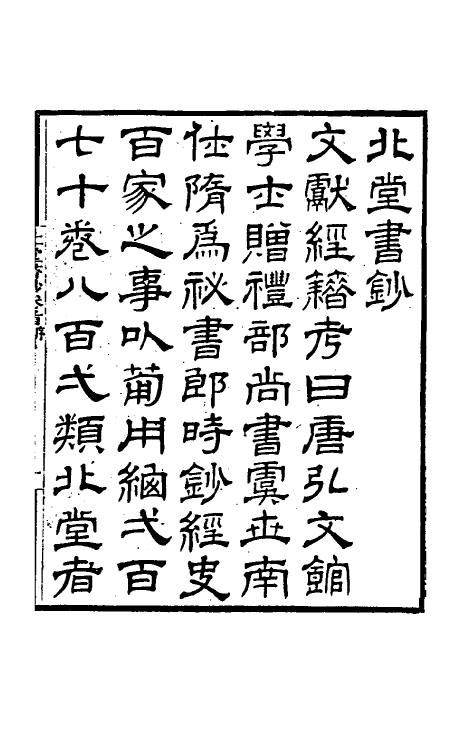 北堂書鈔
文獻經籍考曰唐弘文館
學士贈禮部尚書虞世南
仕隋爲祕書郎時鈔經史
百家之事以葡用緬弌百
七十卷八百弌類北堂者